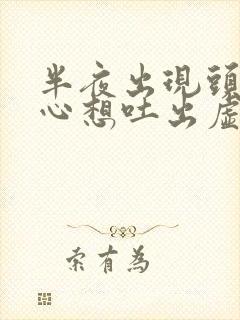 半夜出現頭
心想吐出虛
索有為